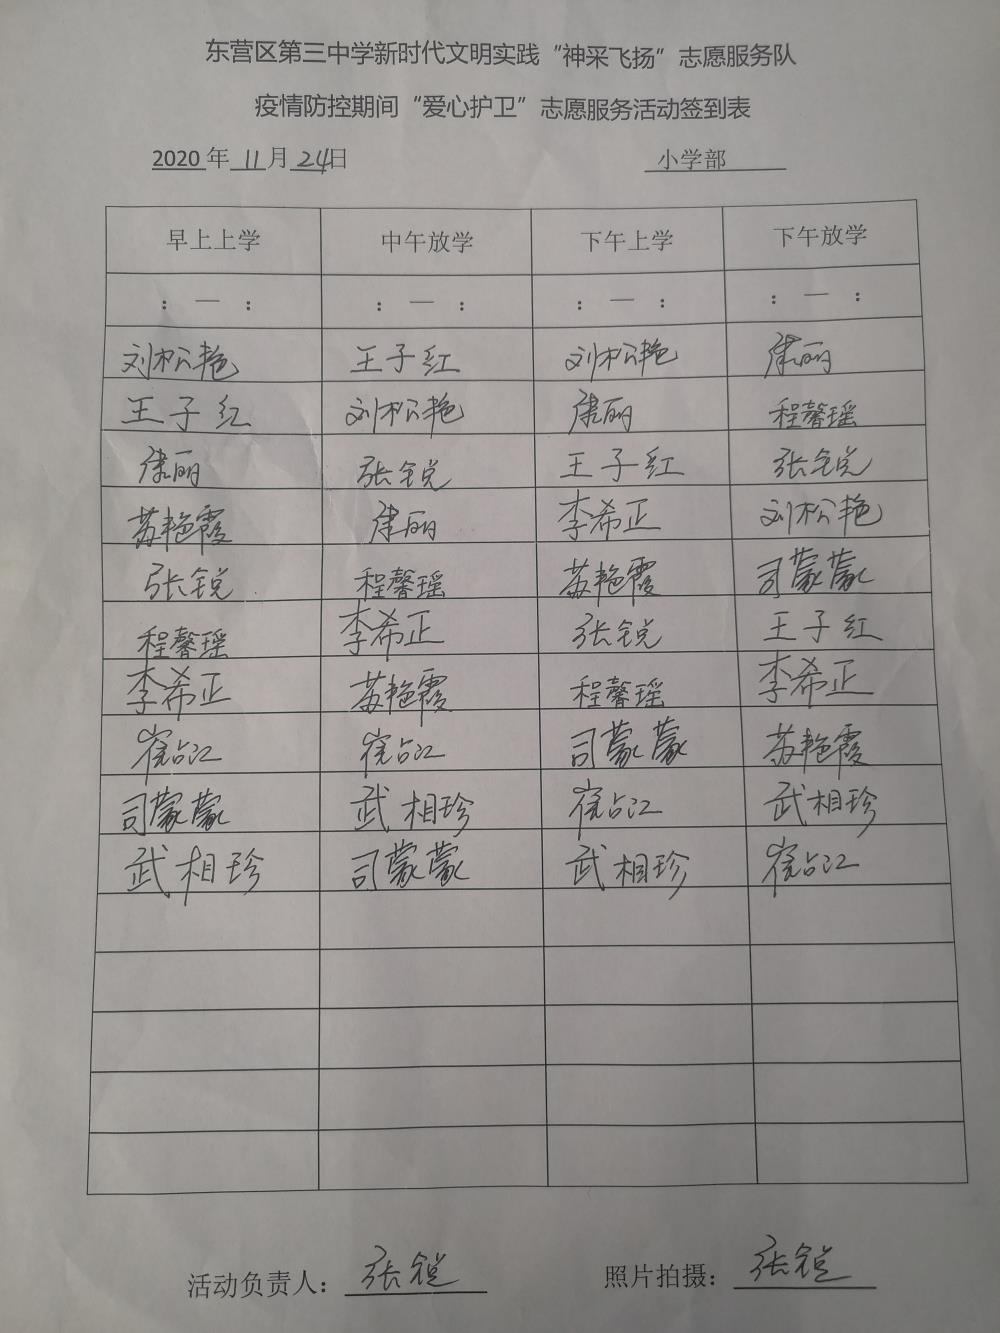 东营区第三中学新时代文明实践“神采飞扬”志愿服务队
疫情防控期间“爱心护卫”志愿服务活动签到表
2020 年 11 月 24 日 小学部
早上上学 中午放学 下午上学 下午放学
: — : : — : : — : : — :
刘松艳 王子红 刘松艳 康丽
王子红 刘松艳 康丽 程馨瑶
康丽 张锐 王子红 张锐
苏艳霞 康丽 李希正 刘松艳
张锐 程馨瑶 苏艳霞 司蒙蒙
程馨瑶 李希正 张锐 王子红
李希正 苏艳霞 程馨瑶 李希正
崔占江 崔占江 司蒙蒙 苏艳霞
司蒙蒙 武相珍 崔占江 武相珍
武相珍 司蒙蒙 武相珍 崔占江
活动负责人: 张锐 照片拍摄: 张锐